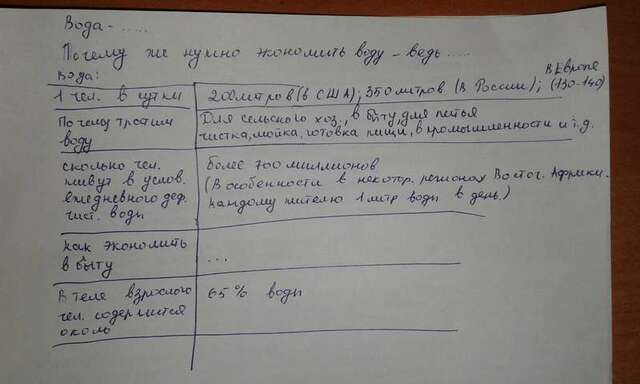 Вода - .....
Почему же нужно экономить воду - ведь .....
Вода:
1 чел. в сутки
200 литров (в США); 350 литров (в России); (130-140)
в Европе
Почему тратим
воду
Для сельского хоз., в быту, для питья
чистка, мойка, готовка пищи, в промышленности и т.д.
сколько чел.
живут в услов.
ежедневного деф.
чист. воды
более 700 миллионов
(В особенности в некотор. регионах Восточ. Африки.
каждому жителю 1 литр воды в день.)
как экономить
в быту
...
В теле взрослого
чел. содержится
около
65% воды